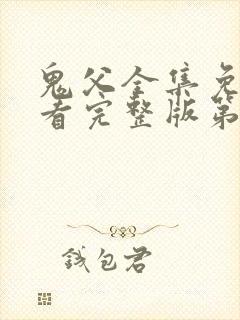 鬼父全集免
看完整版第
钱包君